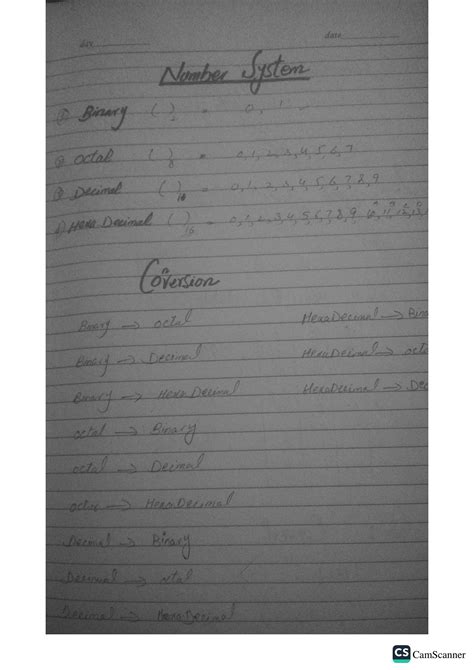 day
date
Number System
① Binary ( )₂ = 0, 1
② octal ( )₈ = 0,1,2,3,4,5,6,7
③ Decimal ( )₁₀ = 0,1,2,3,4,5,6,7,8,9
④ Hexa Decimal ( )₁₆ = 0,1,2,3,4,5,6,7,8,9, 10, 11, 12, 13,
Conversion
Binary → octal HexaDecimal → Bina
Binary → Decimal HexaDecimal → octa
Binary → Hexa Decimal HexaDecimal → Dec
octal → Binary
octal → Decimal
octal → HexaDecimal
Decimal → Binary
Decimal → octal
Decimal → HexaDecimal
CS CamScanner